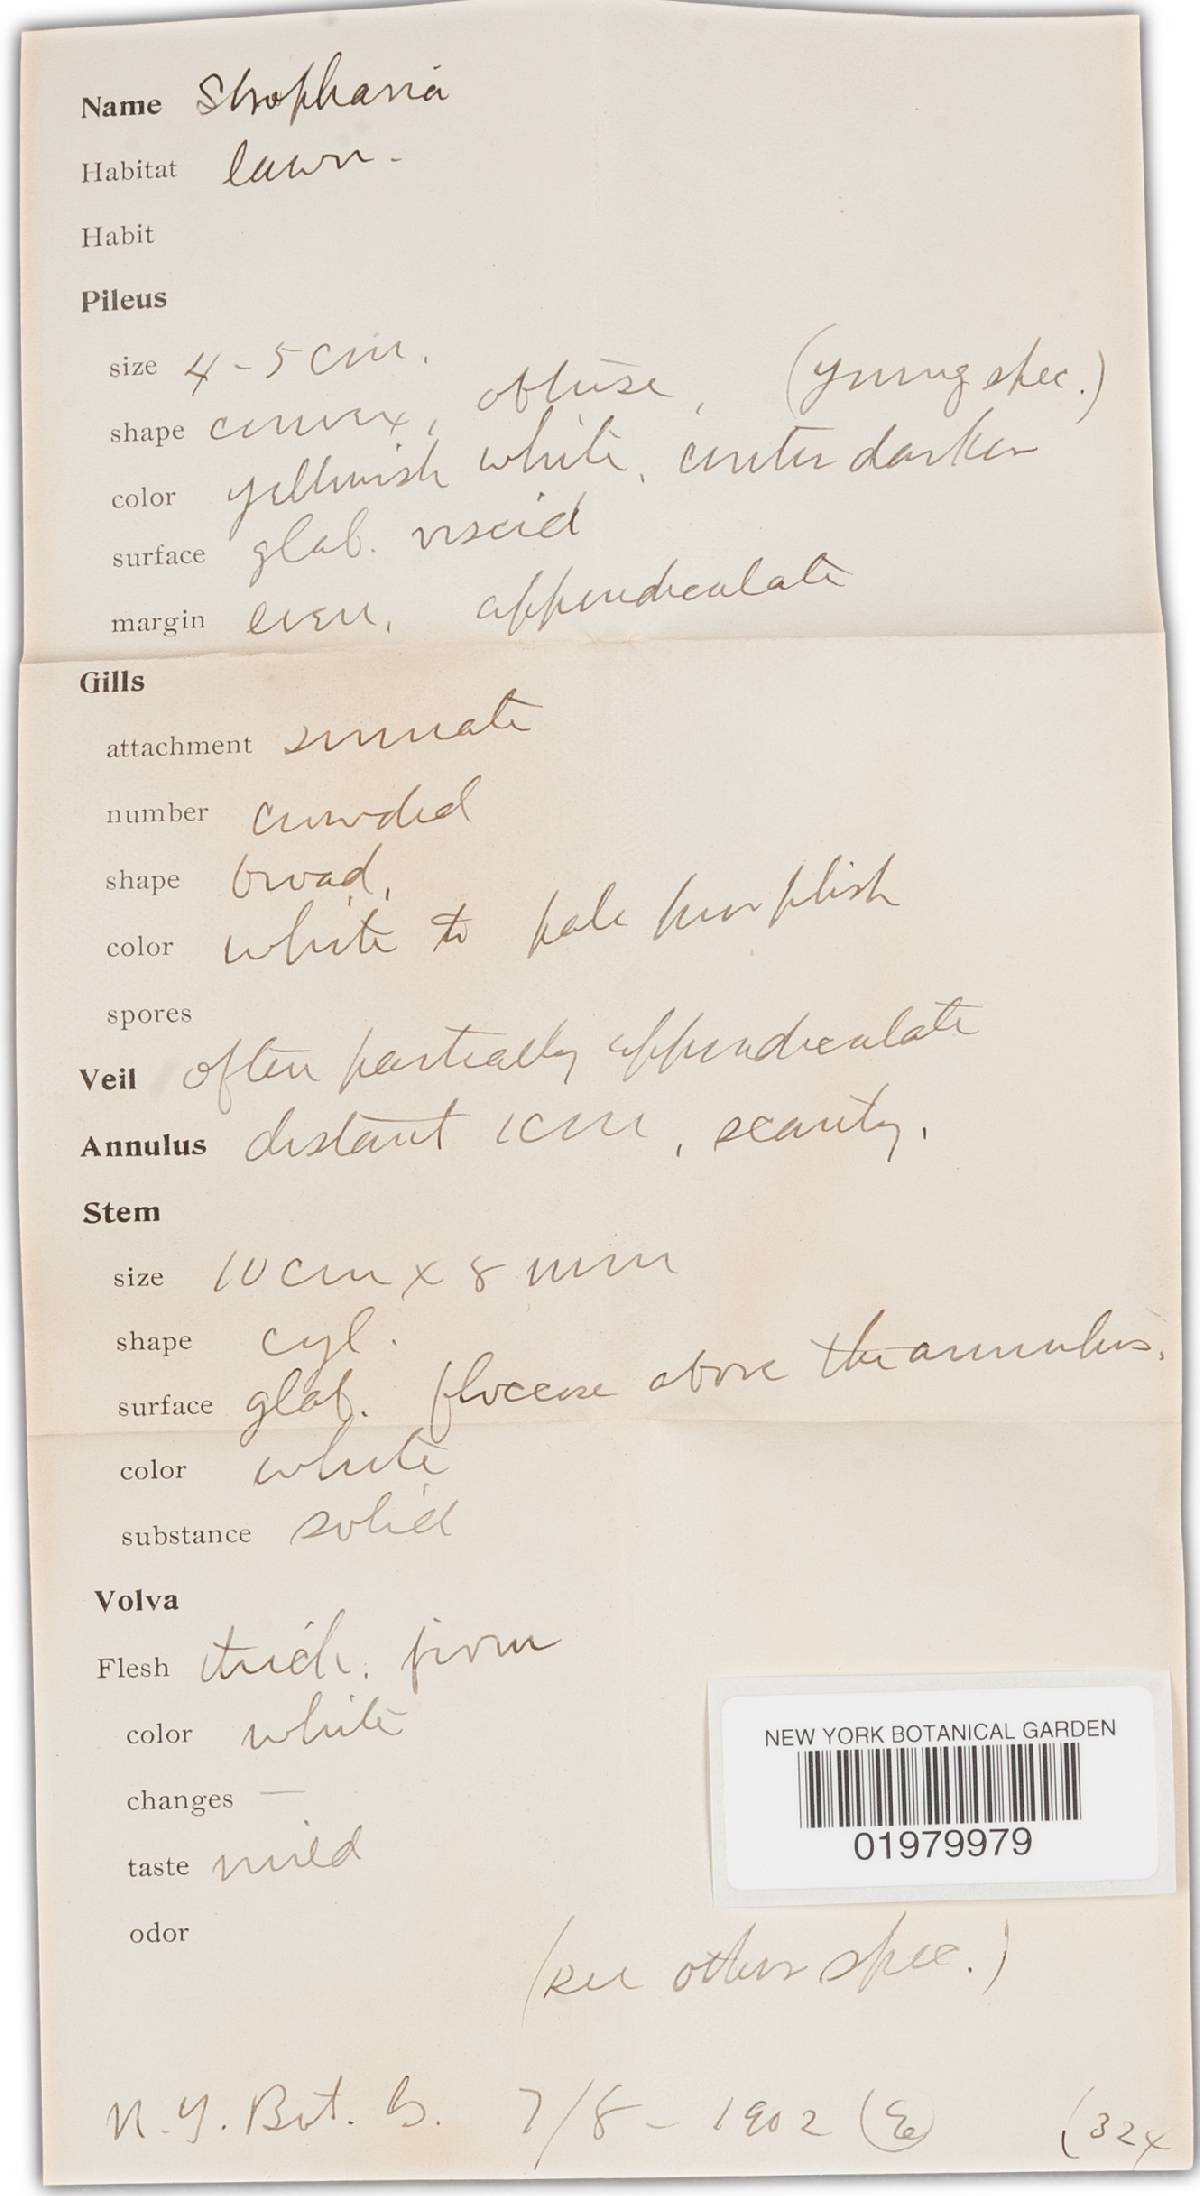 Name Stropharia
Habitat lawn.
Habit
Pileus
size 4-5 cm.
shape convex, obtuse, (young spec.)
color yellowish white, center darker
surface glab. viscid
margin even, appendiculate
Gills
attachment sinuate
number crowded
shape broad,
color white to pale purplish
spores
Veil often partially appendiculate
Annulus distant 1 cm, scanty.
Stem
size 10 cm x 8 mm
shape cyl.
surface glab. floccose above the annulus.
color white
substance solid
Volva
Flesh thick. firm
color white
changes —
taste mild
odor
NEW YORK BOTANICAL GARDEN
01979979
(see other spec.)
N. Y. Bot. G. 7/8 - 1902 (E) (324